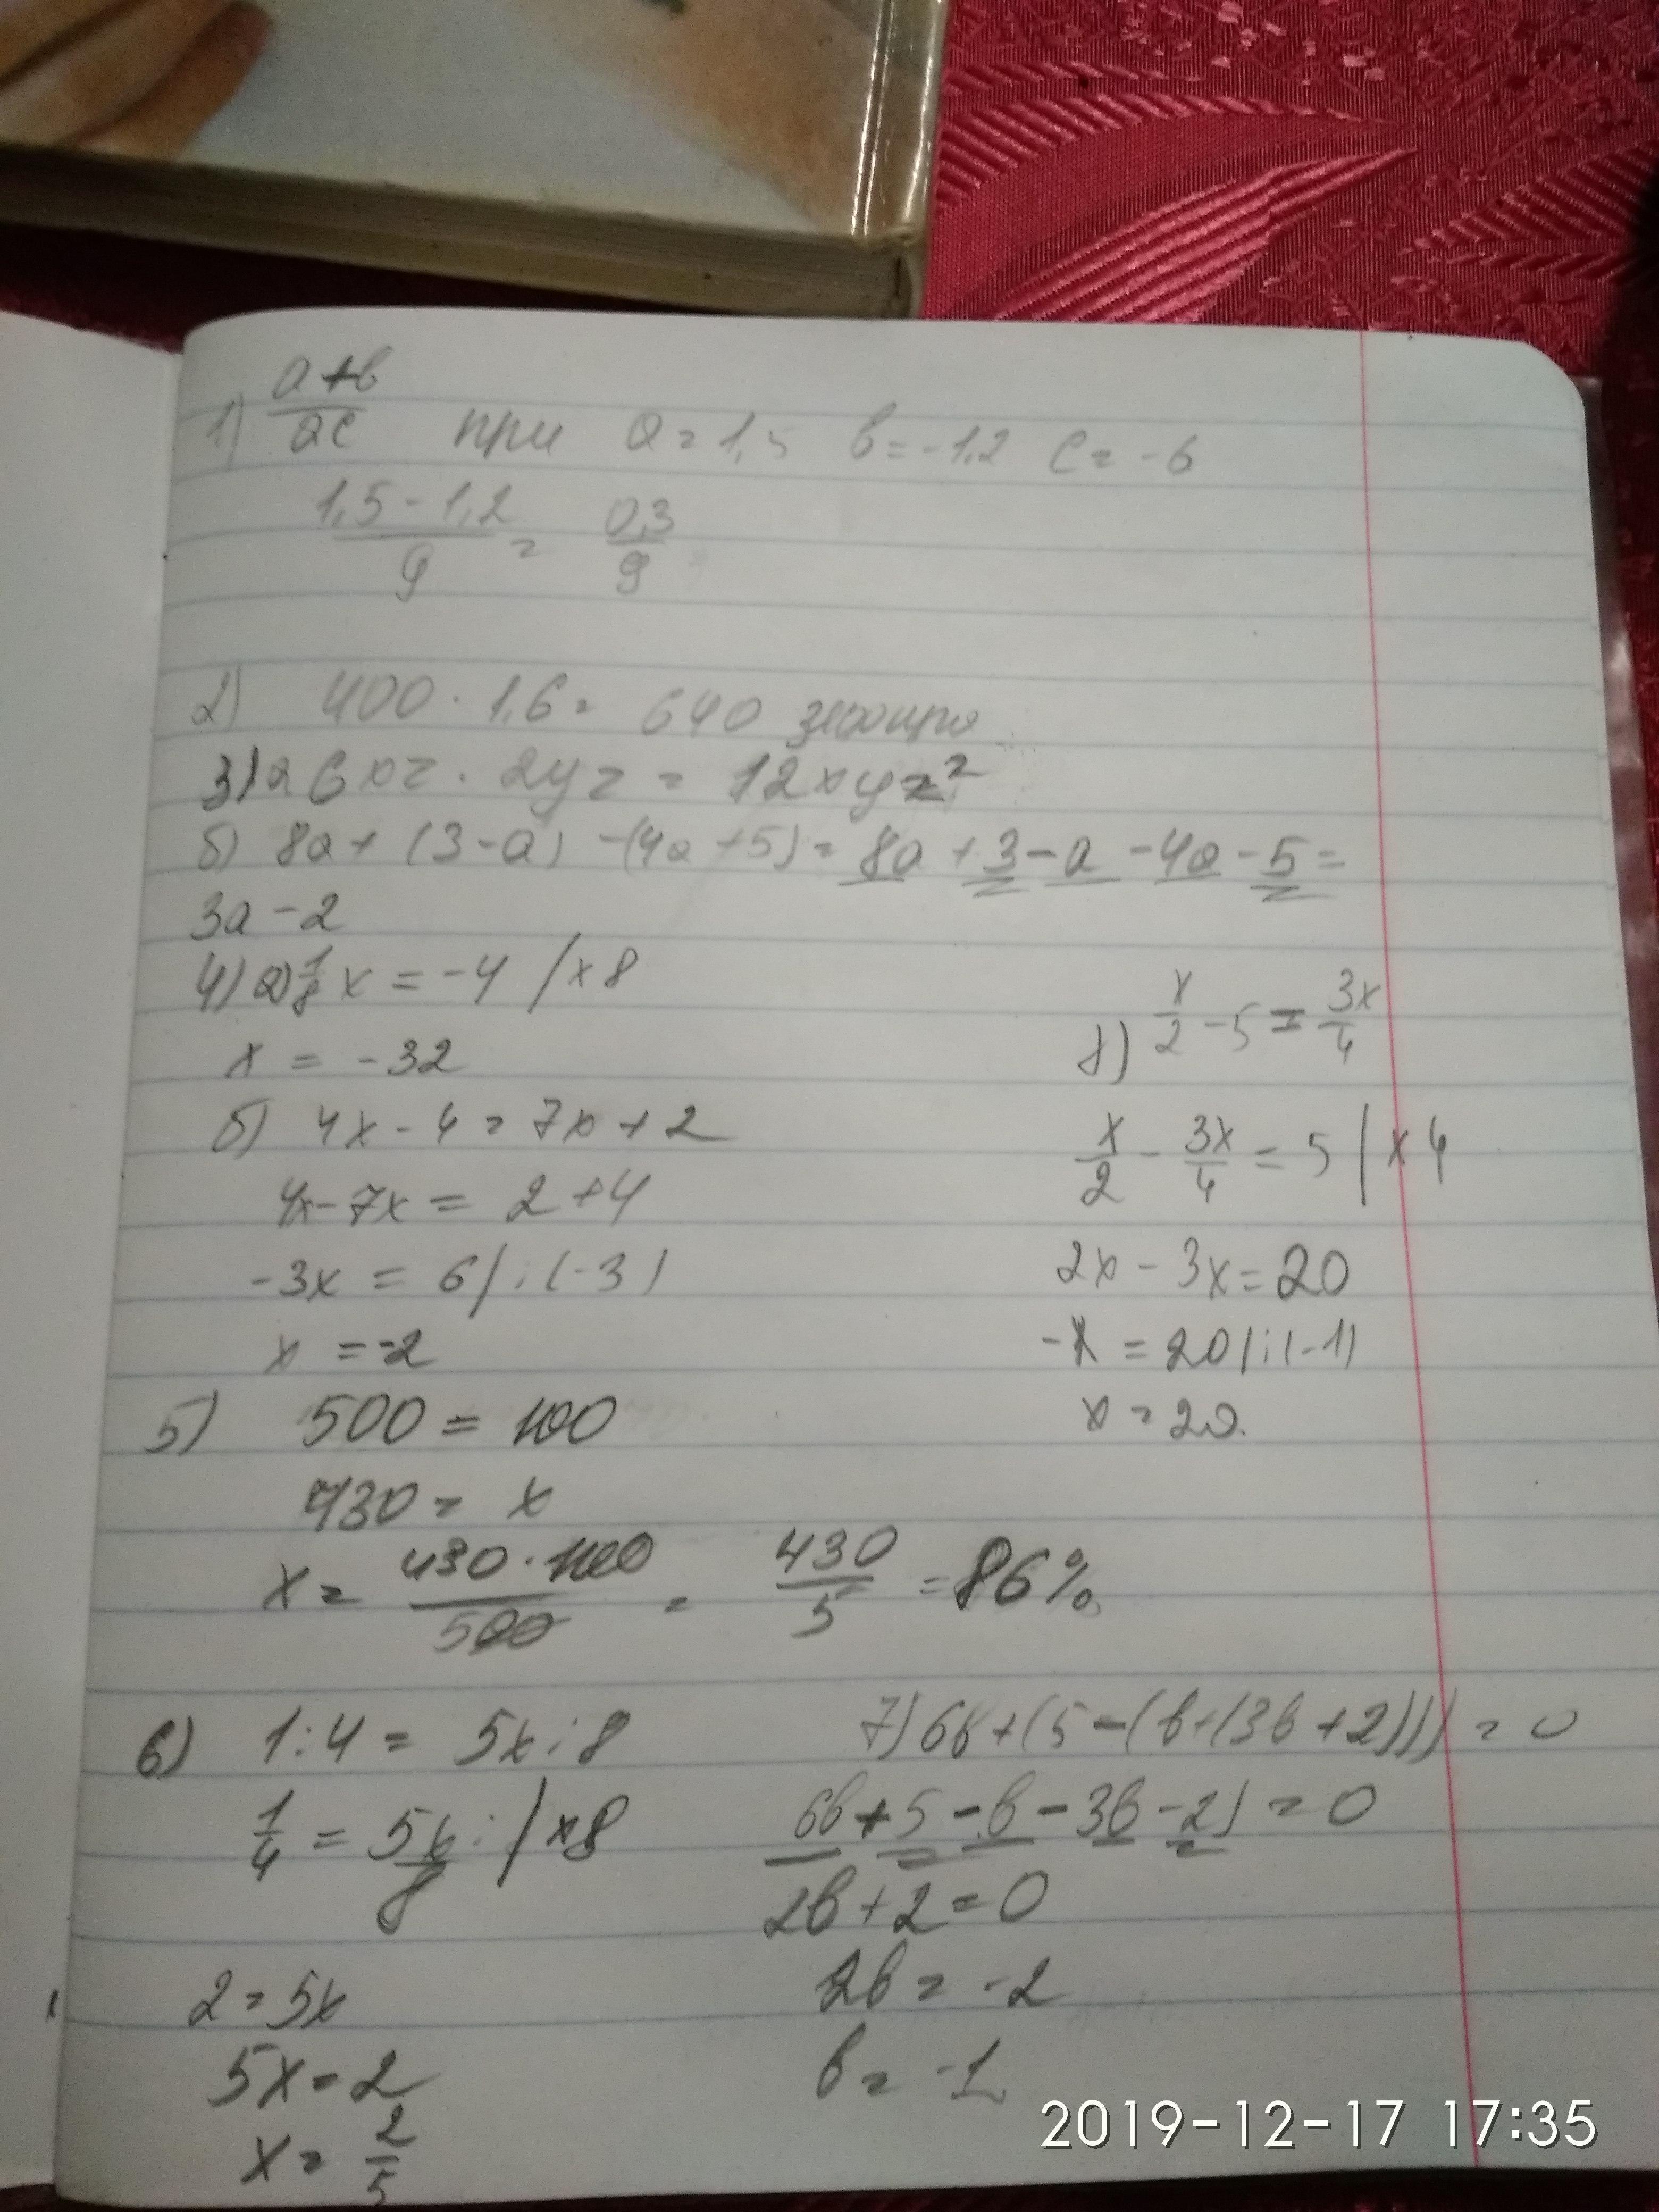 1) a+b/ac при a=1,5 b=-1,2 c=-6
1,5-1,2/9 = 0,3/9
2) 400 · 1,6 = 640
3) а 6xz · 2yz = 12xyz²
б) 8a + (3-a) -(4a+5) = 8a + 3 - a - 4a - 5 =
3a - 2
4) a) 1/8 x = -4 / ×8
x = -32
б) 4x - 4 = 7x + 2
4x - 7x = 2 + 4
-3x = 6 / :(-3)
x = -2
в) x/2 - 5 = 3x/4
x/2 - 3x/4 = 5 | ×4
2x - 3x = 20
-x = 20 | :(-1)
x = 20.
5) 500 = 100
430 = x
x = 430 · 100/500 = 430/5 = 86%
6) 1:4 = 5x:8
1/4 = 5x/8 : / ×8
2 = 5x
5x = 2
x = 2/5
7) 6b+(5-(b+(3b+2))) = 0
6b+5-b-3b-2) = 0
2b+2=0
2b = -2
b = -1
2019-12-17 17:35